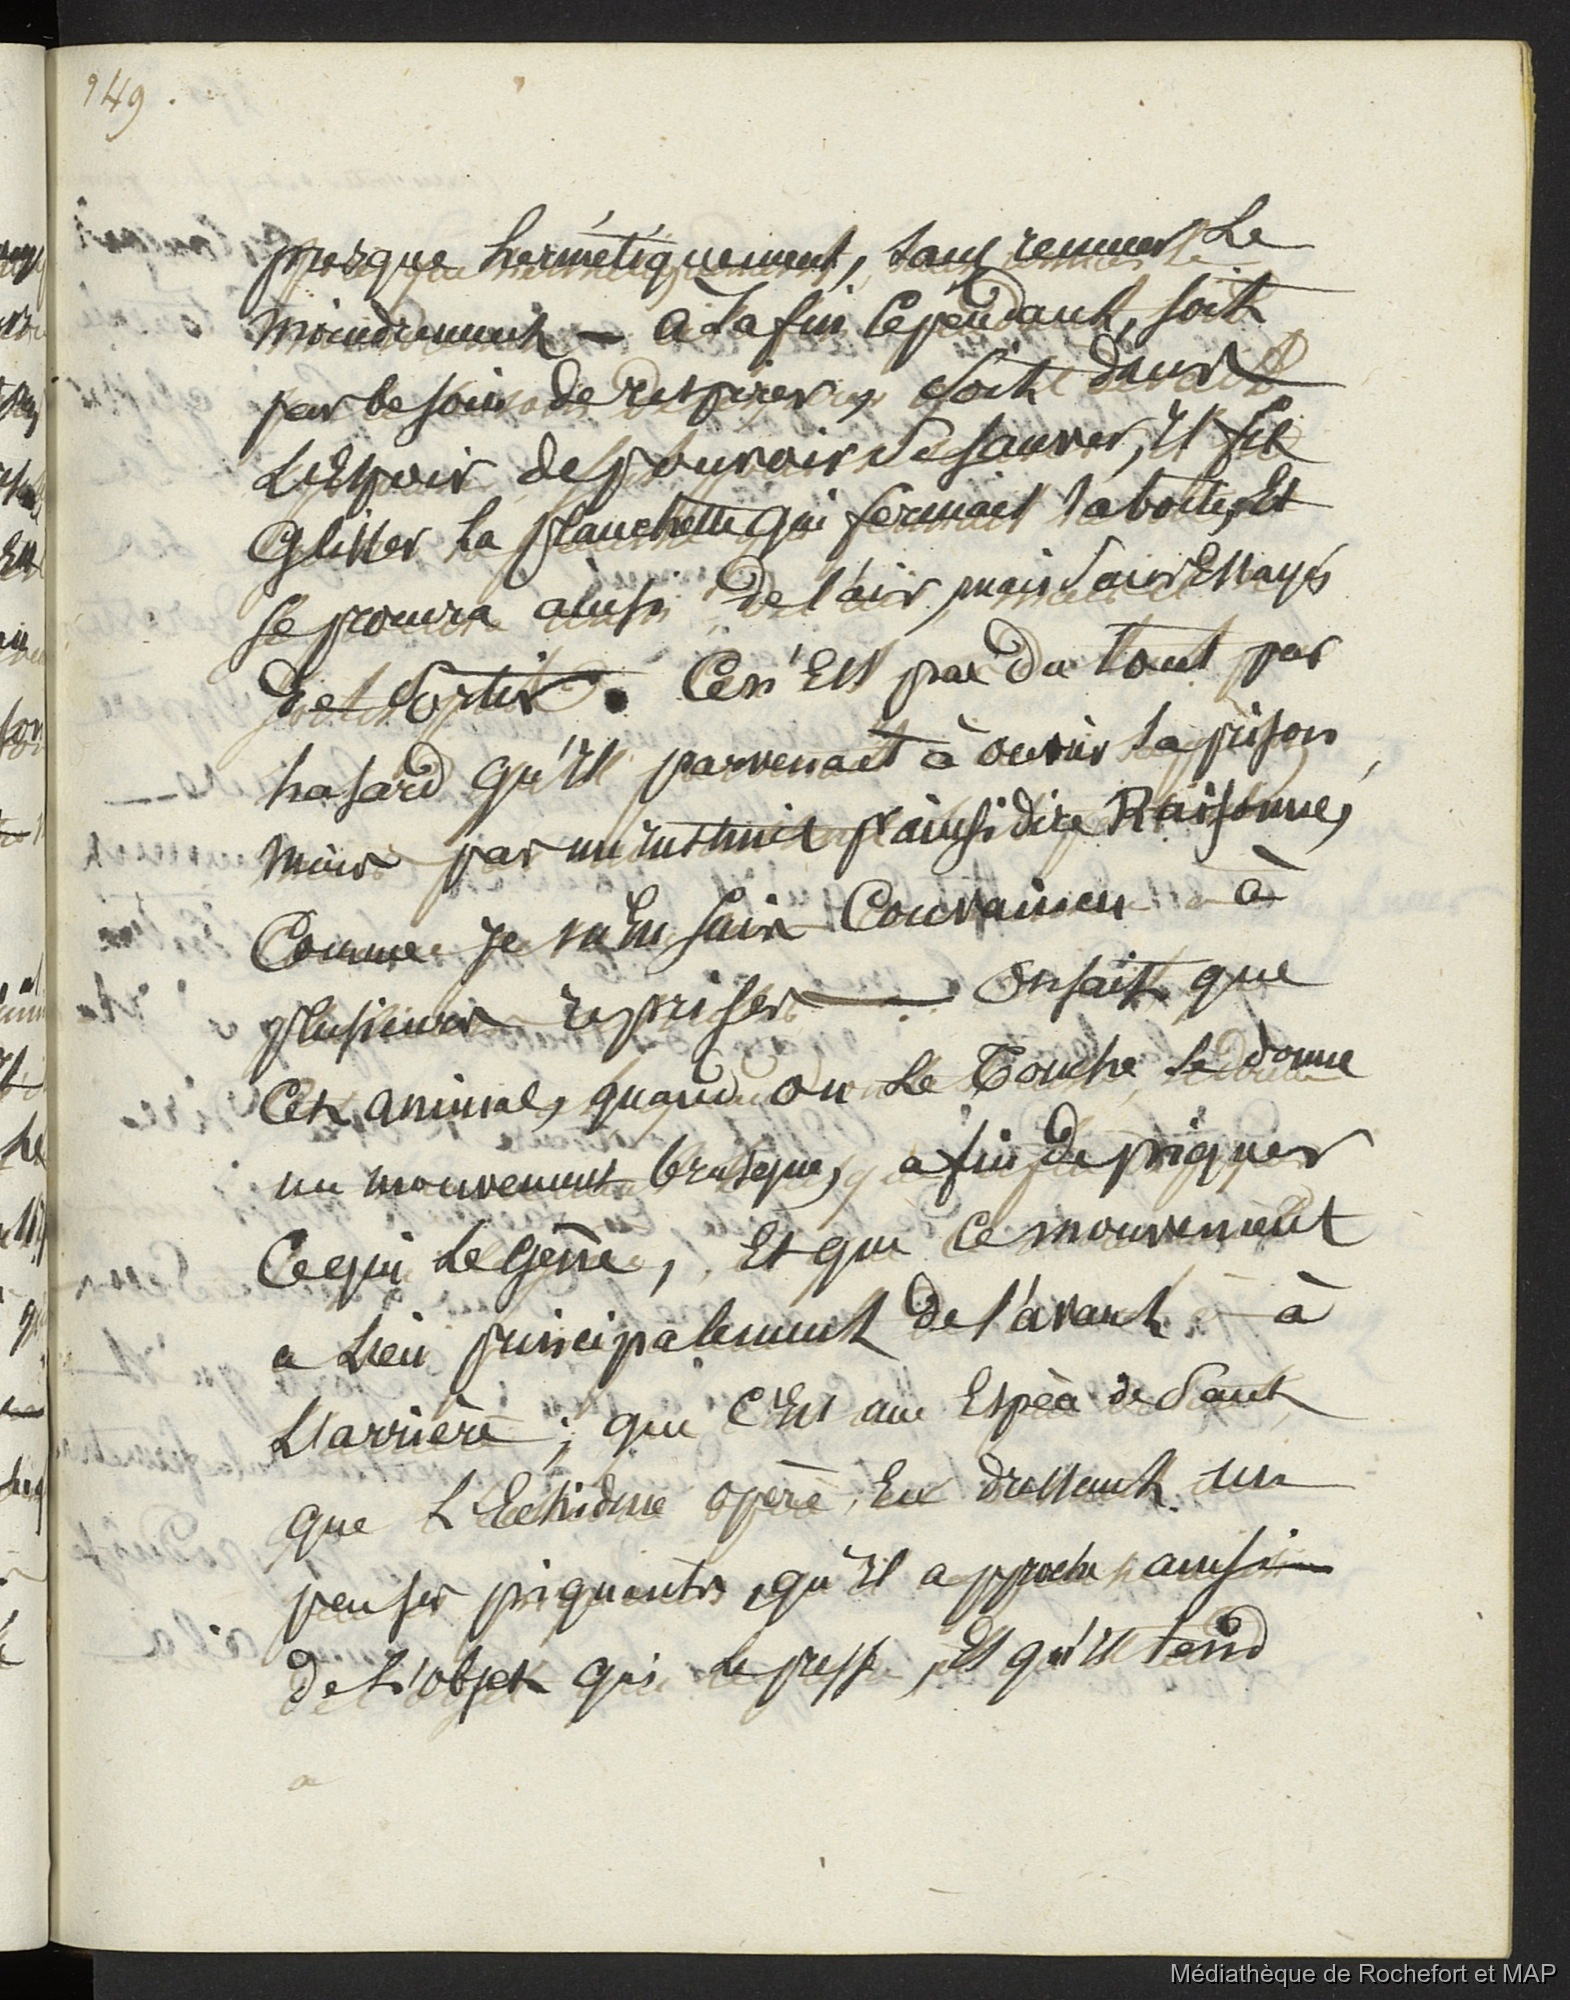 949.
presque hermétiquement, sans remuer Le
moindrement — a La fin Cependant, soit
par besoin de respirer, soit dans
L'Espoir de pouvoir se sauver, Il fit
Glisser La planchette qui fermait la boîte, Et
se procura ainsi de l'air, mais sans Essayer
de Sortir. Ce n'Est pas du tout par
hasard qu'Il parvenait à ouvrir sa prison,
mais par un instinct p.ainsi dire Raisonné,
Comme je m'En suis Convaincu à
plusieurs reprises — On sait que
Cet animal, quand on Le Touche, se donne
un mouvement brusque, afin de piquer
Ce qui Le Gêne, Et que Ce mouvement
a Lieu principalement de l'avant à
L'arrière; que C'Est une Espèce de Saut
que L'Echidne opère, En dressant un
peu ses piquants, qu'Il approche ainsi
de L'objet qui Le presse, Et qu'Il tend
Médiathèque de Rochefort et MAP